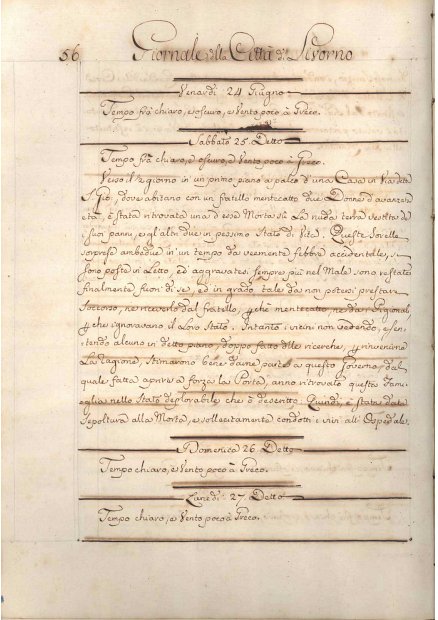 56 Giornale della Città di Livorno
Venardi 24 Giugno
Tempo frà chiaro, e oscuro, e Vento poco à Greco.
Sabbato 25. Detto
Tempo frà chiaro, e oscuro, e Vento poco à Greco.
Verso il mezzo giorno in un primo piano a palco d'una Casa in Via di
S. Gio: dove abitano con un fratello mentecatto due Donne d'avanzata
età, è stata ritrovata una d'esse Morta sù La nuda terra vestita de
i suoi panni, e gl'altri due in pessimo Stato di Vita. Queste Sorelle
sorprese ambedue in un tempo da veemente febbre accidentelle, si
sono poste in Letto, ed aggravatesi sempre più nel Male sono restate
finalmente fuori di se, ed in grado tale da non potersi prestare
soccorso, ne riceverlo dal fratello, pche mentecatto, ne da Pigionali
pche ignoravano il Loro Stato. Intanto i vicini non vedendo, e sen-
tendo alcuno in detto piano, doppo fatto delle ricerche, p rinvenirne
La Cagione, stimarono bene darne parte a questo Governo, dal
quale fatta aprire a forza La Porta, anno ritrovato questa fame-
glia nello Stato deplorabile che ò descritto. Quindi è stata data
sepoltura alla Morta, e sollecitamente condotti i vivi all'Ospedale.
Domenica 26. Detto
Tempo chiaro, e Vento poco à Greco.
Lunedi 27. Detto
Tempo chiaro, e Vento poco à Greco.